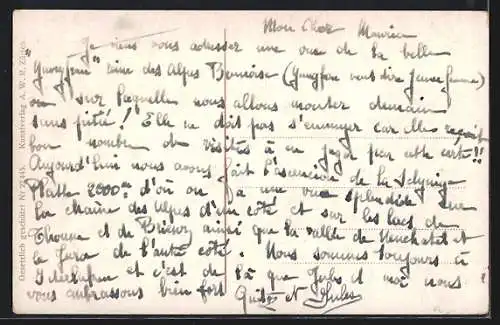 Mon Cher Maurice
Je viens vous adresser une vue de la belle
"Jungfrau" reine des Alpes Bernoise (Jungfrau veut dire jeune femme)
sur laquelle nous allons monter demain
sans pitié! Elle ne doit pas s'ennuyer car elle reçoit
bon nombre de visites à en juger par cette carte!!
Aujourd'hui nous avons fait l'ascension de la Schynige
Platte 2000m d'où on a une vue splendide sur
la chaîne des Alpes d'un côté et sur les lacs de
Thoune et de Brienz ainsi que la vallée de Neuchatel et
le Jura de l'autre côté. Nous sommes toujours à
Interlaken et c'est de là que Jules et moi nous
vous embrassons bien fort et Jules
Gesetzlich geschützt Nr. Kunstverlag A. W. R. Zürich